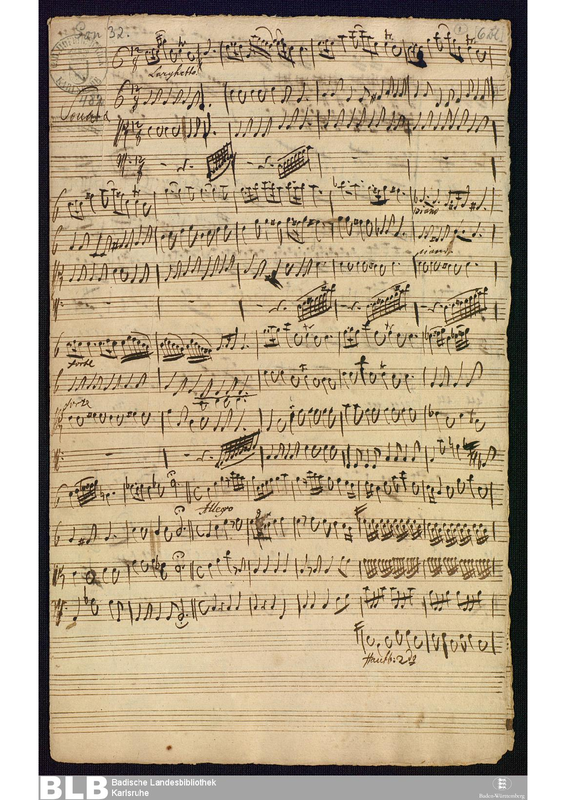 San 32.
Larghetto
Sonata
piano
piano
forte
forte
Allegro
Hautb: 2
BLB Badische Landesbibliothek
Karlsruhe
Baden-Württemberg